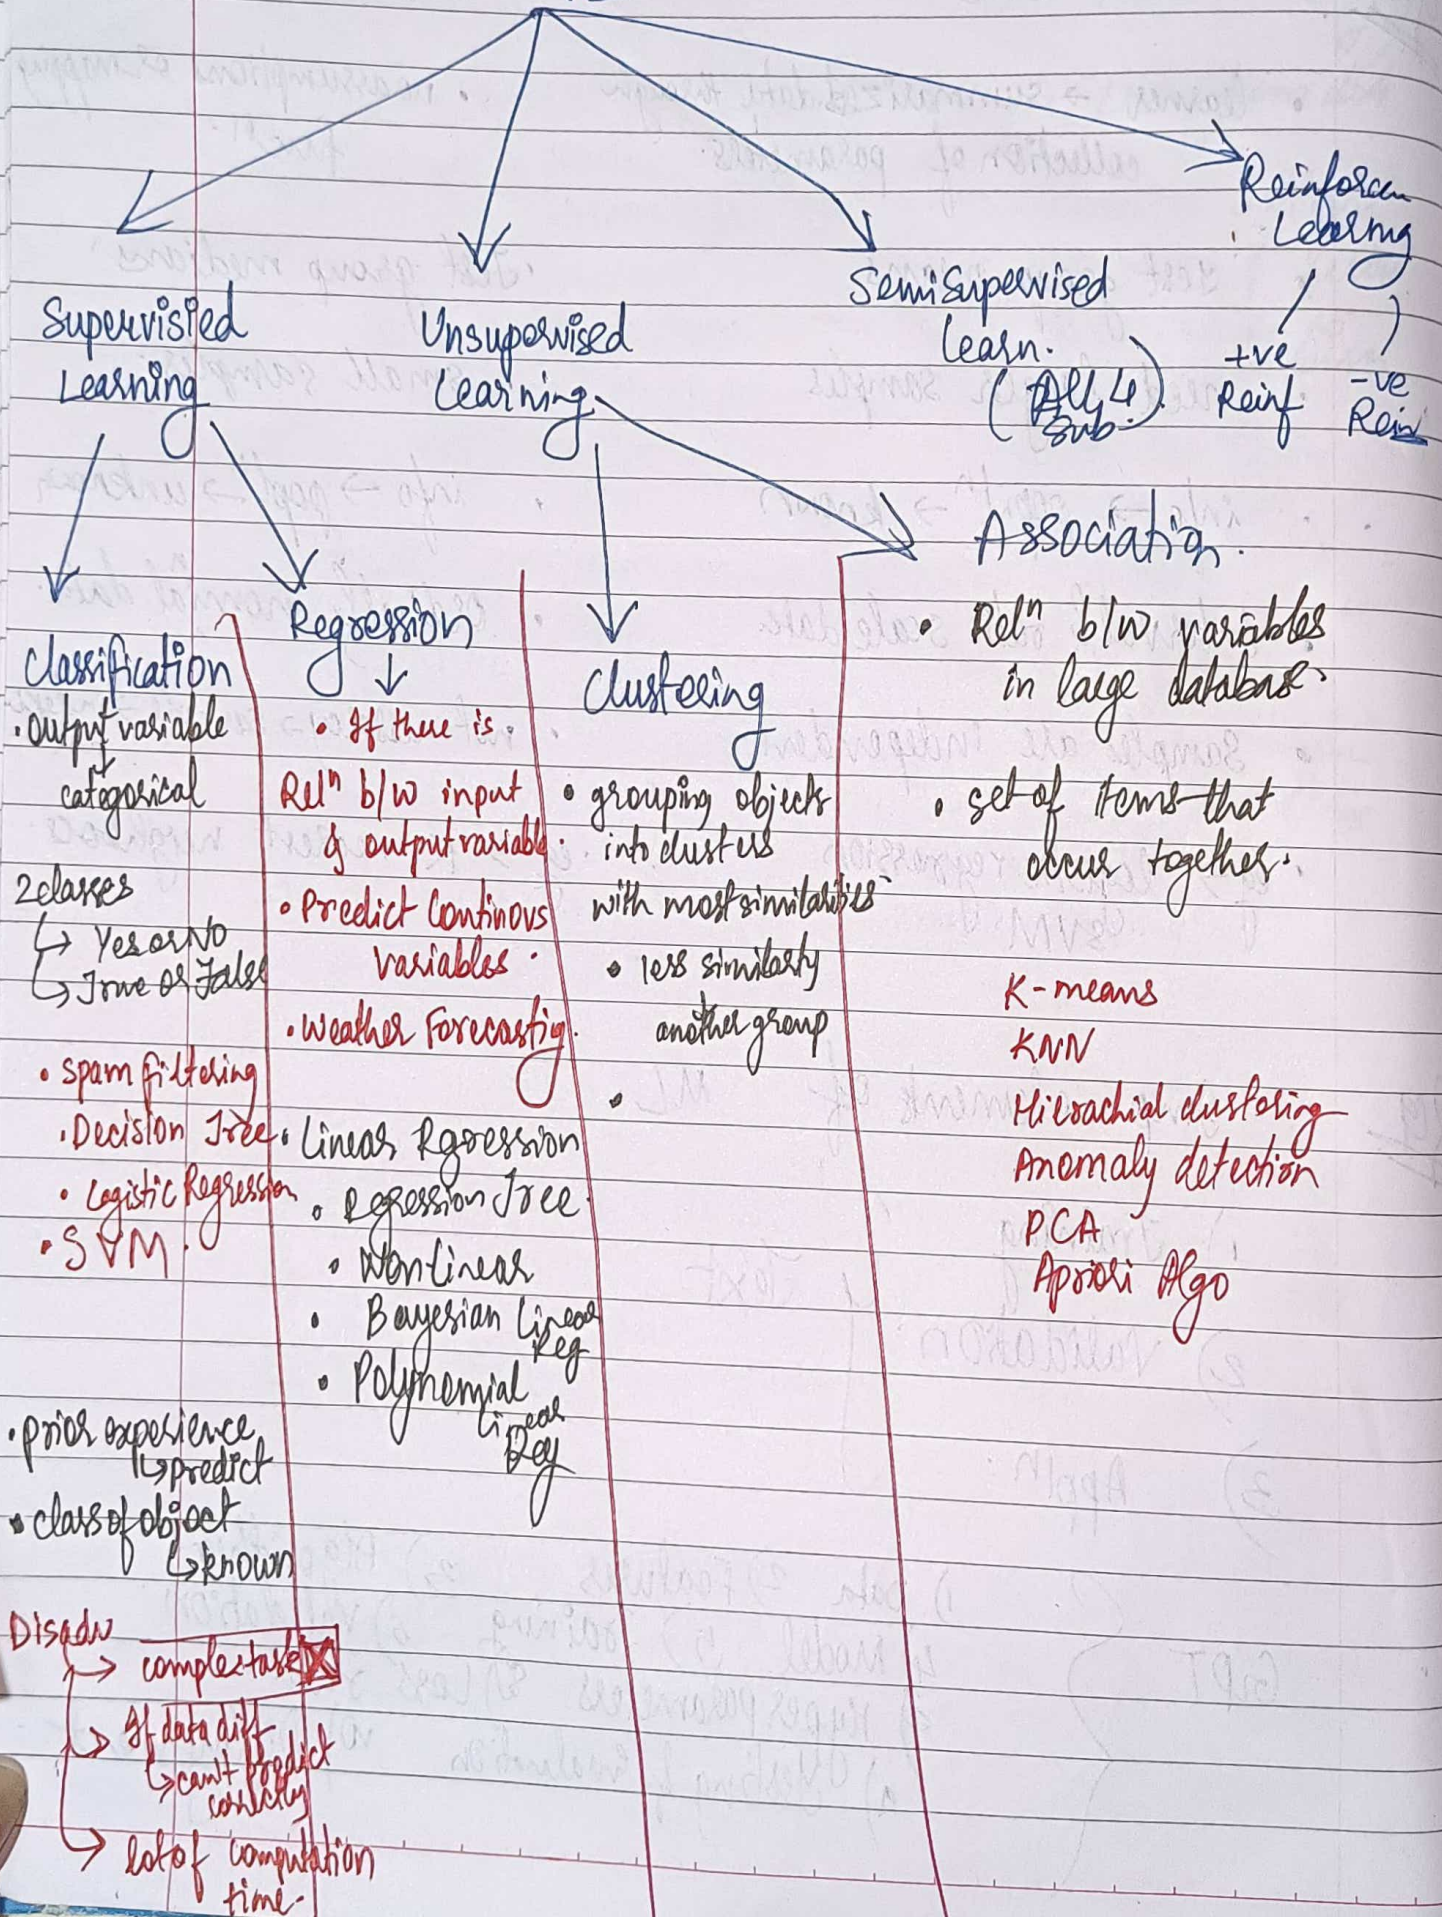 Reinforcen
Learnng
+ve
Reinf
-ve
Rein
SemiSupervised
Learn.
(All 4
Sub.)
Unsupervised
Learning
Supervisied
Learning
Classification
• Output variable
categorical
2 classes
↳ Yes or No
↳ True or False
• Spam filtering
• Decision Tree
• Logistic Regression
• SVM.
• prior experience
↳ predict
• class of object
↳ known
Disadv
→ complex task X
→ If data diff
↳ can't predict
correctly
→ lot of computation
time.
Regression
↓
• If there is
Relⁿ b/w input
& output variable.
• Predict Continous
variables.
• Weather Forecastig.
• Linear Rgression
• Regression Tree.
• Non-linear
• Bayesian Linear
Reg
• Polynomial
Linear
Reg
Clustering
• grouping objects
into clusters
with most similarities
• less similarty
another group
•
Association.
• Relⁿ b/w variables
in large database.
• set of items that
occur together.
K-means
KNN
Hierachial clustering
Anomaly detection
PCA
Apriori Algo